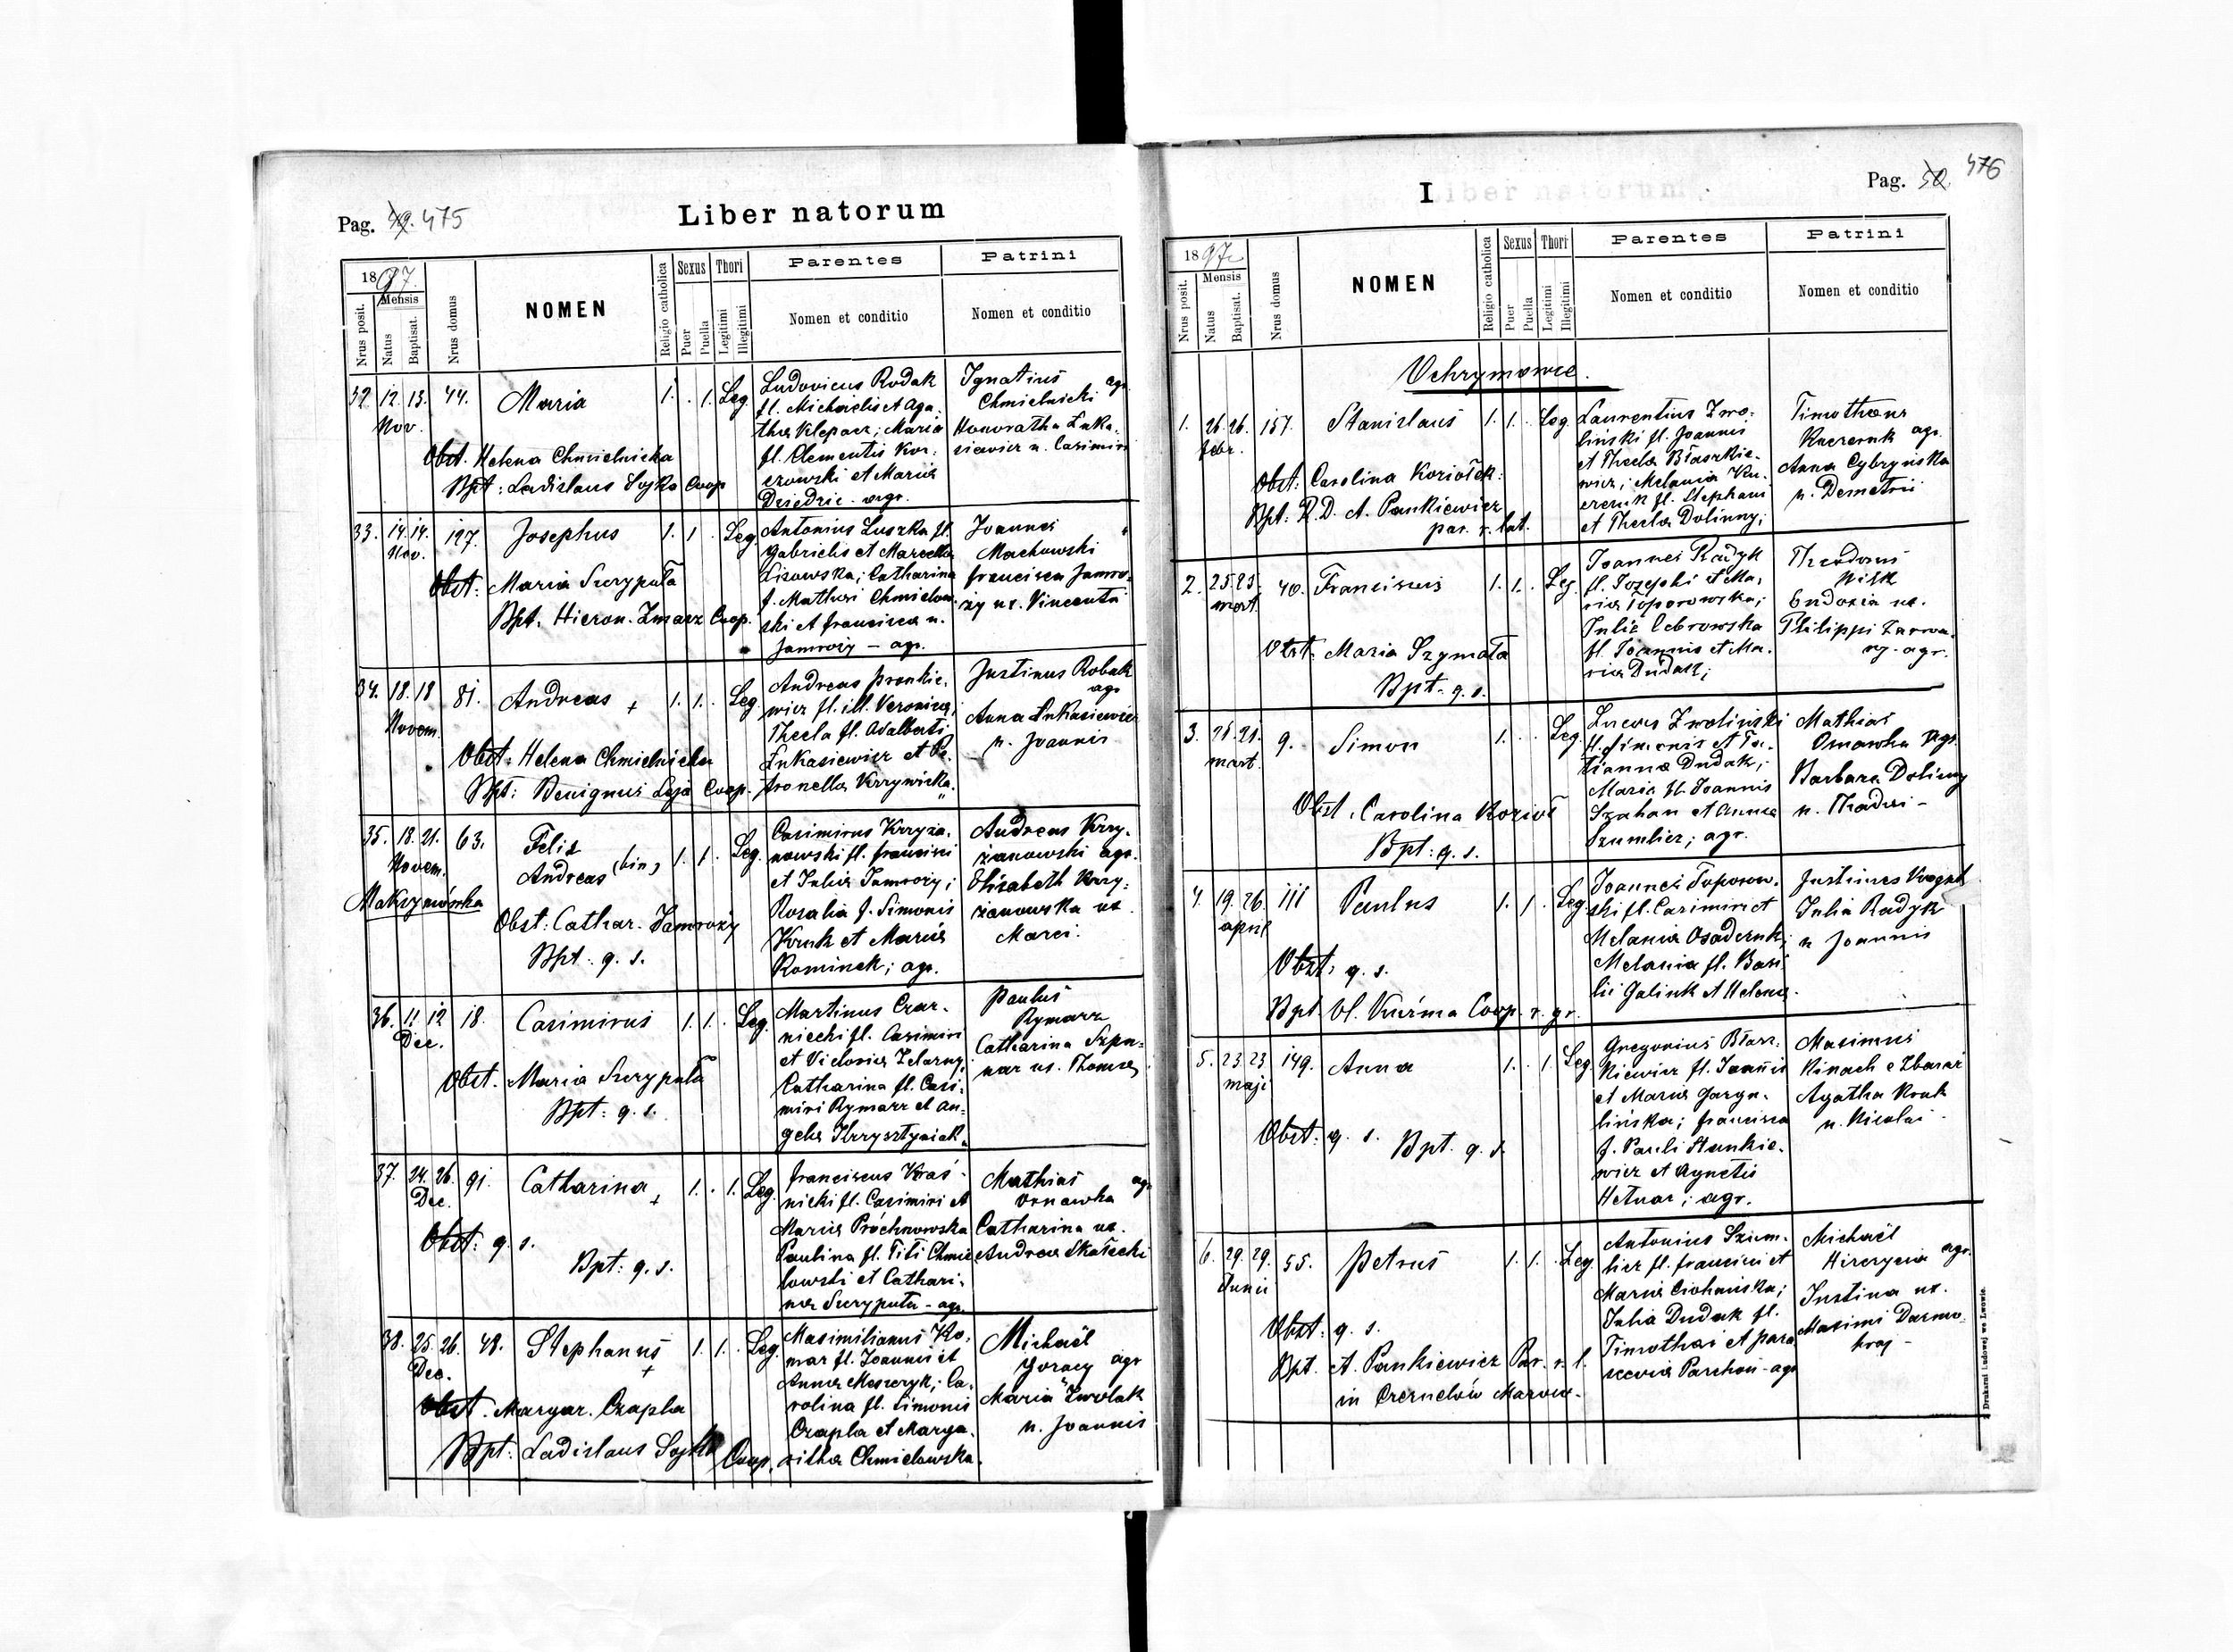 Pag. 49. 475
Liber natorum
1897.
Nrus posit.
Mensis
Natus
Baptisat.
Nrus domus
NOMEN
Religio catholica
Sexus
Puer
Puella
Thori
Legitimi
Illegitimi
Parentes
Nomen et conditio
Patrini
Nomen et conditio
32 12. 13. 44. Maria 1. . 1. Leg
Nov.
Obst. Helena Chmielnicka
Bpt: Ladislaus Sojka Coop
Ludovicus Rodak
fl. Michaelis et Aga-
tha Klepacz; Maria
fl. Clementis Kor-
czowski et Maria
Dziedzic - agr.
Ignatius agr
Chmielnicki
Honoratha Łuka-
siewicz u. Casimiri
33. 14. 14. 127. Josephus 1. 1 . Leg.
Nov.
Obst: Maria Szczypuła
Bpt. Hieron. Zmarz Coop.
Antonius Luszka fl.
Gabrielis et Marcella
Lisowska; Catharina
f. Mathaei Chmielow-
ski et Francisca n.
Jamroży - agr.
Joannes "
Machowski
Francisca Jamro-
ży ux. Vincenti
34. 18. 18 81. Andreas + 1. 1. . Leg.
Novem.
Obst: Helena Chmielnicka
Bpt: Benignus Leja Coop.
Andreas Pronkie-
wicz fl. ill. Veronica,
Thecla fl. Adalberti
Łukasiewicz et Pe-
tronella Krzywicka.
Justinus Robak
agr
Anna Łukasiewicz
u. Joannis
35. 18. 21. 63. Felix
Novem. Andreas (bin) 1. 1. . Leg.
Makrymówka
Obst: Cathar. Jamroży
Bpt: q. s.
Casimirus Krzyża-
nowski fl. Francisci
et Julia Jamroży;
Rosalia f. Simonis
Kruk et Maria
Kominek; agr.
Andreas Krzy-
żanowski agr.
Elisabeth Krzy-
żanowska ux.
Marci.
36. 11 12 18. Casimirus 1. 1. . Leg.
Dec.
Obst. Maria Szczypuła
Bpt: q. s.
Martinus Czar-
niecki fl. Casimiri
et Victoria Żelazny;
Catharina fl. Casi-
miri Rymarz et An-
gela Skrzysztyniak.
Paulus
Rymarz
Catharina Szpu-
nar ux. Thomae
37. 24. 26. 91. Catharina + 1. . 1. Leg.
Dec.
Obst: q. s.
Bpt: q. s.
Franciscus Kraś-
nicki fl. Casimiri et
Maria Próchnowska
Paulina fl. Titi Chmie-
lowski et Cathari-
na Szczypuła - agr.
Mathias agr
Ornawka
Catharina ux.
Andreae Skałecki
38. 25. 26. 48. Stephanus + 1. 1. . Leg.
Dec.
Obst. Margar. Czapla
Bpt: Ladislaus Sojka Coop.
Maximilianus Ko-
mar fl. Joannis et
Anna Moszczyk; Ca-
rolina fl. Simonis
Czapla et Marga-
ritha Chmielowska.
Michaël
Goracy agr
Maria Zwolak
u. Joannis
Pag. 50. 476
Liber natorum
1897
Nrus posit.
Mensis
Natus
Baptisat.
Nrus domus
NOMEN
Religio catholica
Sexus
Puer
Puella
Thori
Legitimi
Illegitimi
Parentes
Nomen et conditio
Patrini
Nomen et conditio
Ochrymowce.
1. 26. 26. 157. Stanislaus 1. 1. . Leg.
Febr.
Obst: Carolina Koziołek:
Bpt: R. D. A. Pankiewicz
par. r. lat.
Laurentius Zwo-
liński fl. Joannis
et Thecla Błaszkie-
wicz; Melania Ku-
czeruk fl. Stephani
et Thecla Dolinny;
Timotheus
Kuczeruk agr.
Anna Cybryńska
u. Demetrii
2. 25 25. 40. Franciscus 1. 1. . Leg.
mart.
Obst. Maria Szymała
Bpt. q. s.
Joannes Radyk
fl. Josephi et Ma-
ria Toporowska;
Julia Cebrowska
fl. Joannis et Ma-
ria Dudak;
Theodorus
Wilk
Eudoxia ux.
Philippi
agr.
3. 21. 21. 9. Simon 1. . . Leg.
mart.
Obst. Carolina Kozioł
Bpt: q. s.
Lucas Zwoliński
fl. Simonis et Ta-
tianna Dudak;
Maria fl. Joannis
Szahan et Anna
Szumlicz; agr.
Mathias
Ornawka agr.
Barbara Dolinny
u. Thadei -
4. 19. 26. 111 Paulus 1. 1. . Leg.
april
Obst: q. s.
Bpt. Vl. Kuźma Coop. r. gr.
Joannes Toporow-
ski fl. Casimiri et
Melania Osadczuk;
Melania fl. Basi-
lii Galiuk et Helena.
Justinus
Julia Radyk
u Joannis
5. 23. 23. 149. Anna 1. . 1. Leg.
maji
Obst: q. s. Bpt. q. s.
Gregorius Błasz-
kiewicz fl. Joannis
et Maria Goryn-
lińska; Francisca
f. Pauli Stankie-
wicz et Agnetis
Hetnar; agr.
Maximus
Kinach e Zbaraż
Agatha Kruk
u. Nicolai -
6. 29. 29. 55. Petrus 1. 1. . Leg.
Junii
Obst: q. s.
Bpt. A. Pankiewicz Par. r. l.
in Czernelów Mazow.
Antonius Szum-
licz fl. Francisci et
Maria Ciohańska;
Julia Dudak fl.
Timothei et Para-
scevia Parchoń - agr
Michaël
Hirczycia agr.
Justina ux.
Maximi Darmo-
hraj -
Z Drukarni Ludowej we Lwowie.